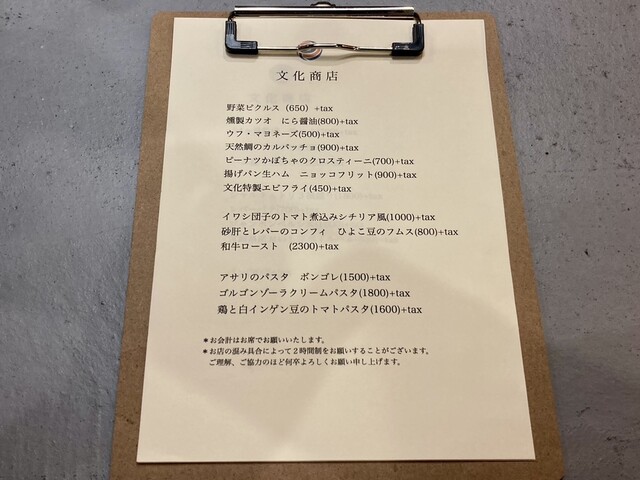 文化商店
野菜ピクルス（650）+tax
燻製カツオ　にら醤油(800)+tax
ウフ・マヨネーズ(500)+tax
天然鯛のカルパッチョ(900)+tax
ピーナツかぼちゃのクロスティーニ(700)+tax
揚げパン生ハム　ニョッコフリット(900)+tax
文化特製エビフライ(450)+tax
イワシ団子のトマト煮込みシチリア風(1000)+tax
砂肝とレバーのコンフィ　ひよこ豆のフムス(800)+tax
和牛ロースト　(2300)+tax
アサリのパスタ　ボンゴレ(1500)+tax
ゴルゴンゾーラクリームパスタ(1800)+tax
鶏と白インゲン豆のトマトパスタ(1600)+tax
＊お会計はお席でお願いいたします。
＊お店の混み具合によって２時間制をお願いすることがございます。
ご理解、ご協力のほど何卒よろしくお願い申し上げます。